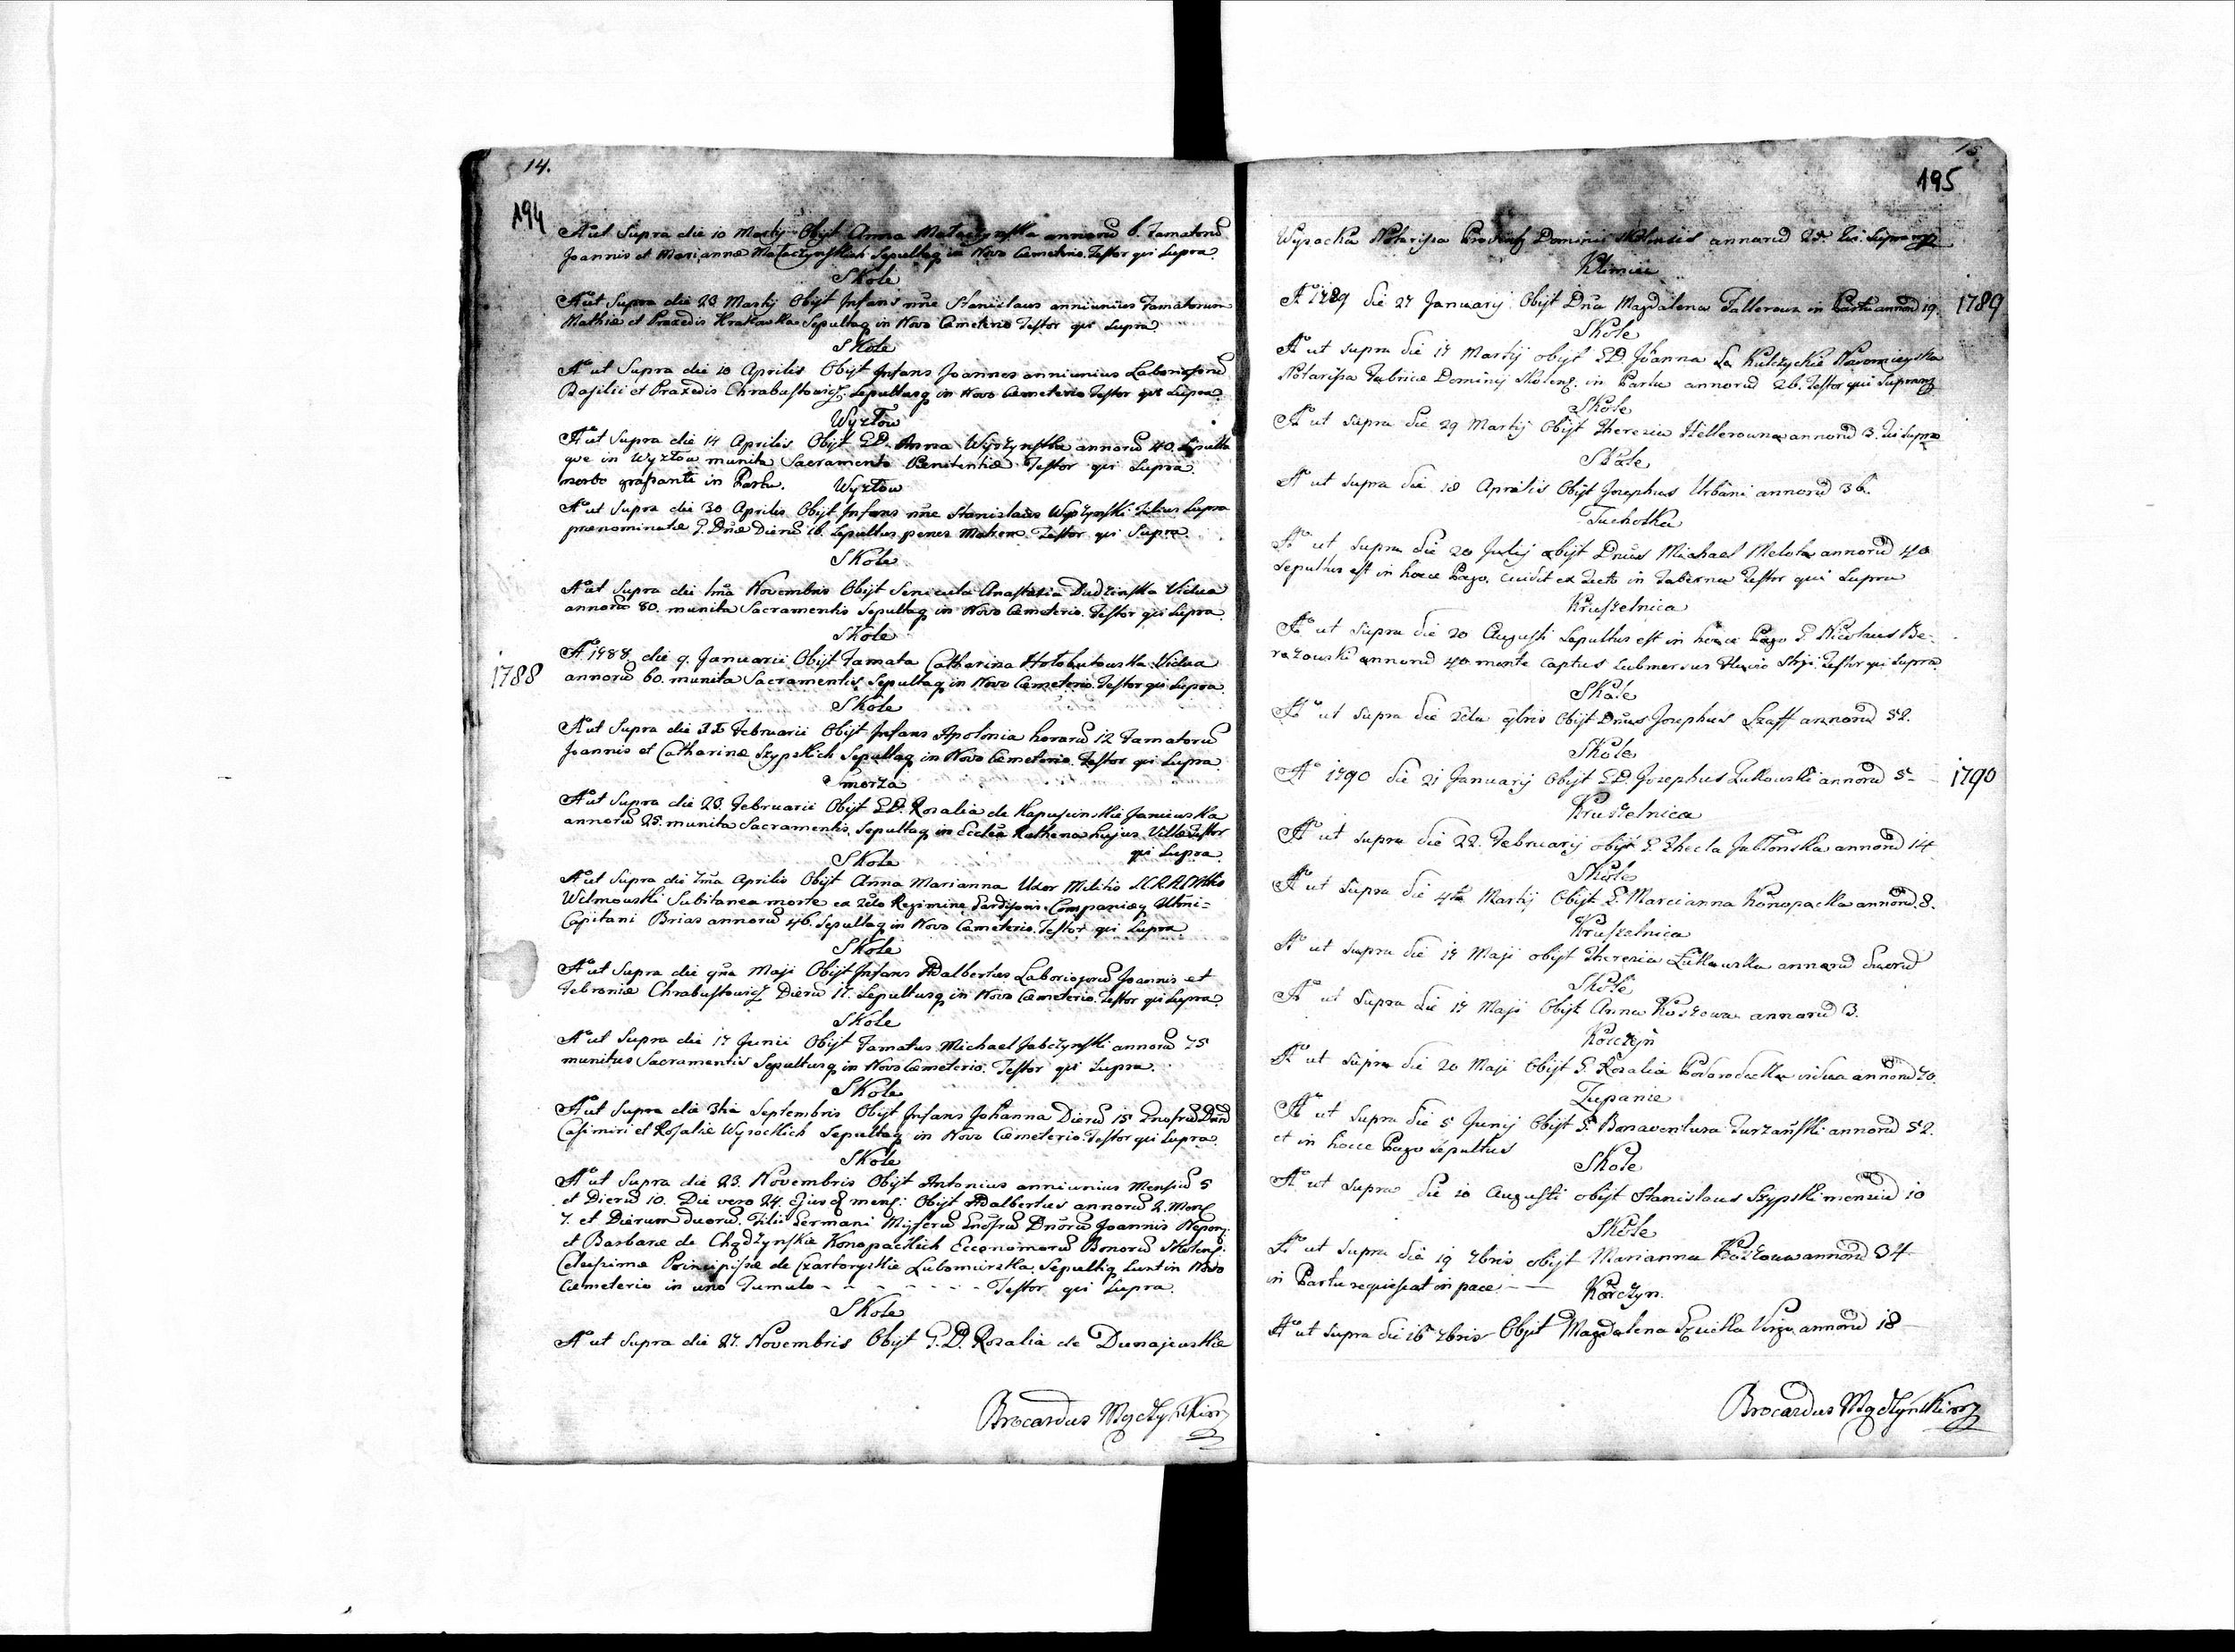 14.
194
Aº ut Supra die 10 Martij Obijt Anna Małaczynska annorū 6. Famatorū
Joannis et Mariannæ Małaczynskich Sepultaq in Novo Cæmeterio. Testor qui Supra.
Skole
Aº ut Supra die 23 Martij Obijt Infans nñe Stanislaus anniunius Famatorum
Mathiæ et Praxedis Krakowka Sepultaq in Novo Cæmeterio Testor qui Supra.
Skole
Aº ut Supra die 10 Aprilis Obijt Infans Joannes anniunius Laboriosorū
Basilii et Praxedis Chrabustowicz. Sepultusq in Novo Cæmeterio Testor qui Supra.
Wyżłow
Aº ut Supra die 14 Aprilis Obijt G.D. Anna Wyszynska annorū 40. Sepulta
que in Wyżłow munita Sacramento Pœnitentiæ. Testor qui Supra.
morbo grassante in Partu. Wyżłow
Aº ut Supra die 30 Aprilis Obijt Infans nñe Stanislaus Wyszynski Filius Supra
prænominatæ G. Dñæ Dierū 16. Sepultus penes Matrem. Testor qui Supra.
Skole
Aº ut Supra die 1ma Novembris Obijt Senicula Anastasia Dudzinska Vidua
annorū 80. munita Sacramentis Sepultaq in Novo Cæmeterio. Testor qui Supra.
Skole
1788
Aº 1788 die 9. Januarii Obijt Famata Catharina Hołobutowska Vidua
annorū 60. munita Sacramentis Sepultaq in Novo Cæmeterio. Testor qui Supra.
Skole
Aº ut Supra die Februarii Obijt Infans Apolonia horarū 12 Famatorū
Joannis et Catharinæ Szypskich Sepultaq in Novo Cæmeterio. Testor qui Supra.
Smorza
Aº ut Supra die 23. Februarii Obijt G.D. Rosalia de Kapuscinskie Janiewska
annorū 25. munita Sacramentis, Sepultaq in Ecclia Ruthena hujus Villæ Testor
qui Supra.
Skole
Aº ut Supra die 7ma Aprilis Obijt Anna Marianna Uxor Militis
Welmowski Subitanea morte ex 2do Regimine Companiæq
Capitani Brias annorū 46. Sepultaq in Novo Cæmeterio. Testor qui Supra
Skole
Aº ut Supra die 9na Maji Obijt Infans Adalbertus Laboriosorū Joannis et
Febroniæ Chrabustowicz Dierū 17. Sepultusq in Novo Cæmeterio. Testor qui Supra.
Skole
Aº ut Supra die 17 Junii Obijt Famatus Michael Jabczynski annorū 75
munitus Sacramentis Sepultusq in Novo Cæmeterio. Testor qui Supra.
Skole
Aº ut Supra die 3tia Septembris Obijt Infans Johanna Dierū 15 Gnosrū Dnrū
Casimiri et Rosaliæ Wysockich Sepultaq in Novo Cæmeterio. Testor qui Supra.
Skole
Aº ut Supra die 23. Novembris Obijt Antonius anniunius Mensiū 5
et Dierū 10. Die vero 24. Ejusq mens: Obijt Adalbertus annorū 2. Mens
7. et Dierum duorū. Filii Germani Dnorū Joannis Nepom:
et Barbaræ de Chądzynskie Konopackich Œconomorū Bonorū Skolens:
Celsissimæ Principissæ de Czartoryskie Lubomirska. Sepultiq Sunt in Novo
Cæmeterio in uno Tumulo - - - - - - - Testor qui Supra.
Skole
Aº ut Supra die 27. Novembris Obijt G.D. Rosalia de Dunajewskie
Brocardus Mączyński
15
195
Wysocka Notarissa Dominii Skolensis annorū 25. Supra
Klimiec
Aº 1789 die 27 January Obijt Dña Magdalena Tallerowa in Partu annorū 19. 1789
Skole
Aº ut supra die 17 Martij obijt G.D. Joanna de Kulczyckie
Notarissa Fabricæ Dominij Skolens. in Partu annorū 26. Testor qui Supra
Skole
Aº ut supra die 29 Martij Obijt Theresia Hellerowna annorū 3. Supra
Skole
Aº ut supra die 18 Aprilis Obijt Josephus Urbani annorū 36.
Tucholka
Aº ut supra die 20 Julij obijt Dnus Michael Melota annorū 40
Sepultus est in hocce Pago. cecidit ex Tecto in Taberna Testor qui Supra
Kruszelnica
Aº ut supra die 20 Augusti Sepultus est in hocce Pago G. Nicolaus Be-
rezowski annorū 40 mente captus Submersus Fluvio Stryi. Testor qui Supra.
Skole
Aº ut supra die 9bris Obijt Dnus Josephus Szaff annorū 52.
Skole
Aº 1790 die 21 January Obijt G.D. Josephus Żukowski annorū 5 - 1790
Kruszelnica
Aº ut supra die 22. February obijt G. Thecla Jabłońska annorū 14
Skole
Aº ut supra die 4ta Martij Obijt G. Marcianna Konopacka annorū. 8.
Kruszelnica
Aº ut supra die 17 Maji obijt Theresia Żukowska annorū duorū
Skole
Aº ut supra die 17 Maji Obijt Anna Kozłowa annorū 3.
Korczyn
Aº ut supra die 20 Maji Obijt G. Rosalia Podhorodecka vidua annorū 70.
Zupanie
Aº ut supra die 5 Junij Obijt G. Bonaventura Turzański annorū 52.
et in hocce Pago sepultus
Skole
Aº ut supra die 10 Augusti obijt Stanislaus Szypski mensiū 10
Skole
Aº ut supra die 19 obijt Marianna Kozłowa annorū 34
in Partu requiescat in pace - - Korczyn.
Aº ut supra die 16 Obijt Magdalena Virgo annorū 18
Brocardus Mączyński